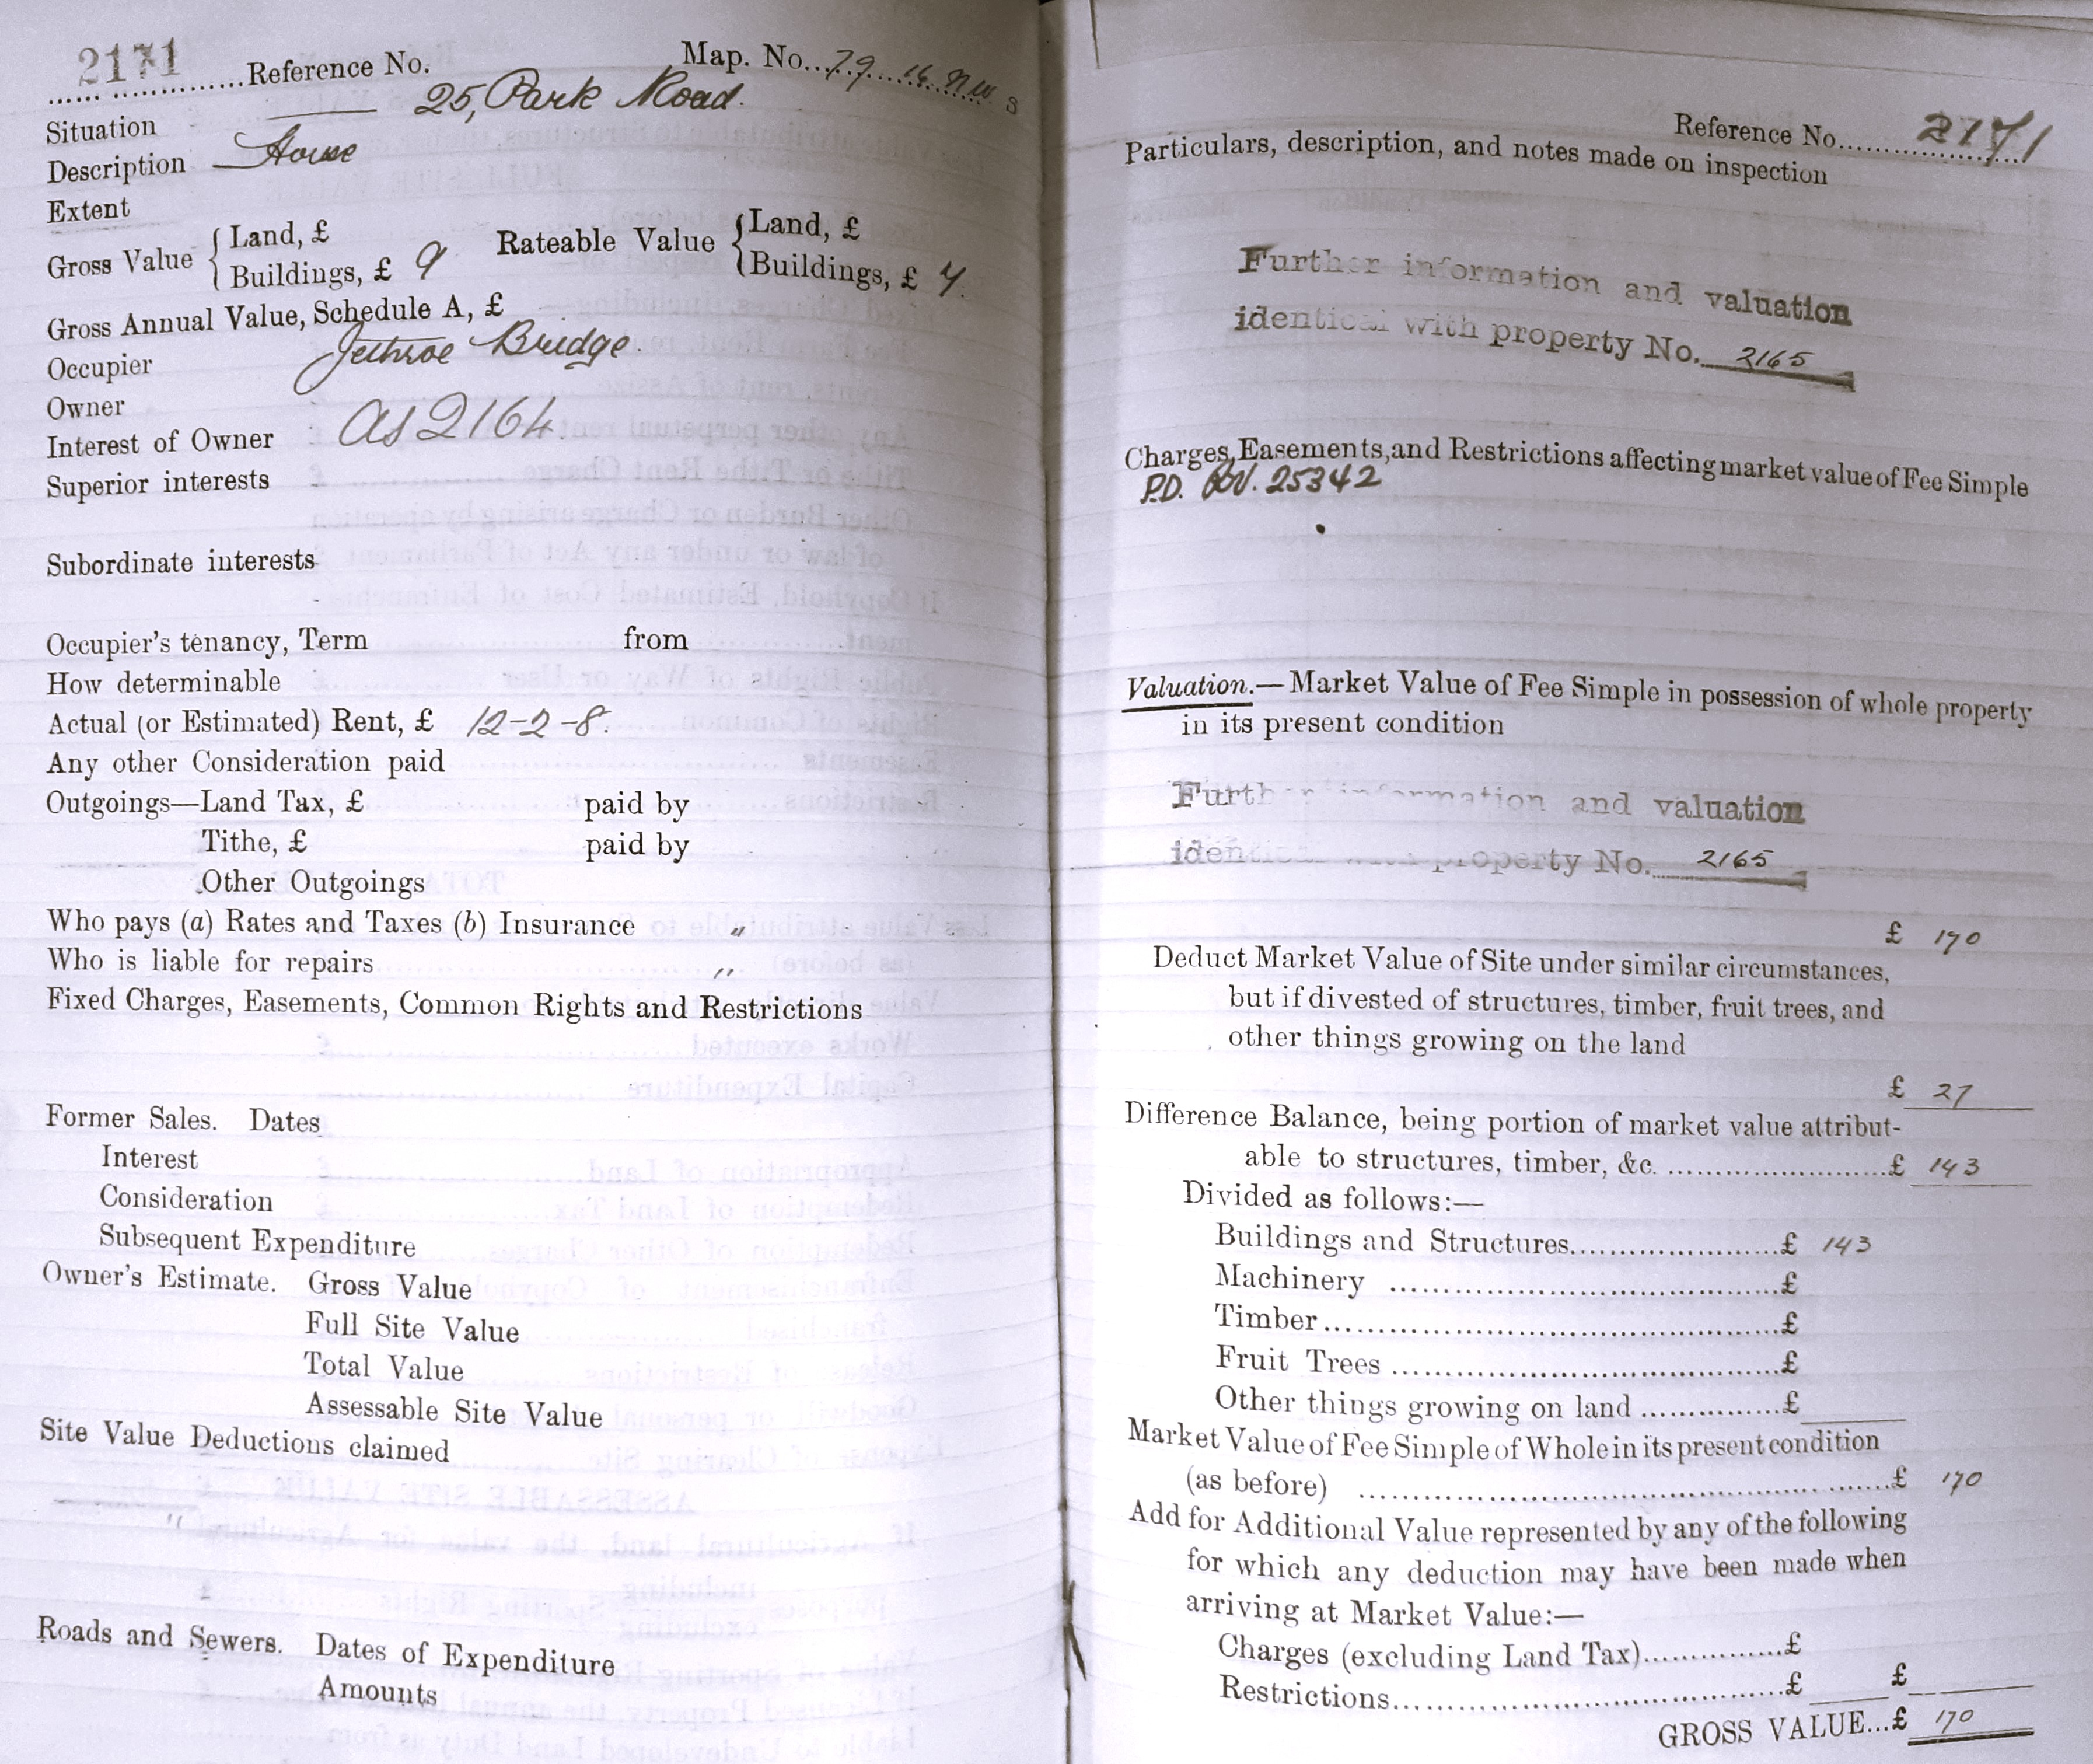 2171 Reference No. Map. No. 79.16.NW. 8
Situation 25, Park Road.
Description House
Extent
Gross Value { Land, £ Rateable Value { Land, £
Buildings, £ 9 Buildings, £ 7.
Gross Annual Value, Schedule A, £
Occupier Jethroe Bridge.
Owner
Interest of Owner as 2164.
Superior interests
Subordinate interests
Occupier's tenancy, Term from
How determinable
Actual (or Estimated) Rent, £ 12-2-8.
Any other Consideration paid
Outgoings—Land Tax, £ paid by
Tithe, £ paid by
Other Outgoings
Who pays (a) Rates and Taxes (b) Insurance "
Who is liable for repairs "
Fixed Charges, Easements, Common Rights and Restrictions
Former Sales. Dates
Interest
Consideration
Subsequent Expenditure
Owner's Estimate. Gross Value
Full Site Value
Total Value
Assessable Site Value
Site Value Deductions claimed
Roads and Sewers. Dates of Expenditure
Amounts
Reference No. 2171
Particulars, description, and notes made on inspection
Further information and valuation
identical with property No. 2165
Charges, Easements, and Restrictions affecting market value of Fee Simple
P.D. 25342
Valuation.— Market Value of Fee Simple in possession of whole property
in its present condition
Further information and valuation
identical with property No. 2165
£ 170
Deduct Market Value of Site under similar circumstances,
but if divested of structures, timber, fruit trees, and
other things growing on the land
£ 27
Difference Balance, being portion of market value attribut-
able to structures, timber, &c. £ 143
Divided as follows:—
Buildings and Structures £ 143
Machinery £
Timber £
Fruit Trees £
Other things growing on land £
Market Value of Fee Simple of Whole in its present condition
(as before) £ 170
Add for Additional Value represented by any of the following
for which any deduction may have been made when
arriving at Market Value:—
Charges (excluding Land Tax) £
Restrictions £ £
GROSS VALUE...£ 170